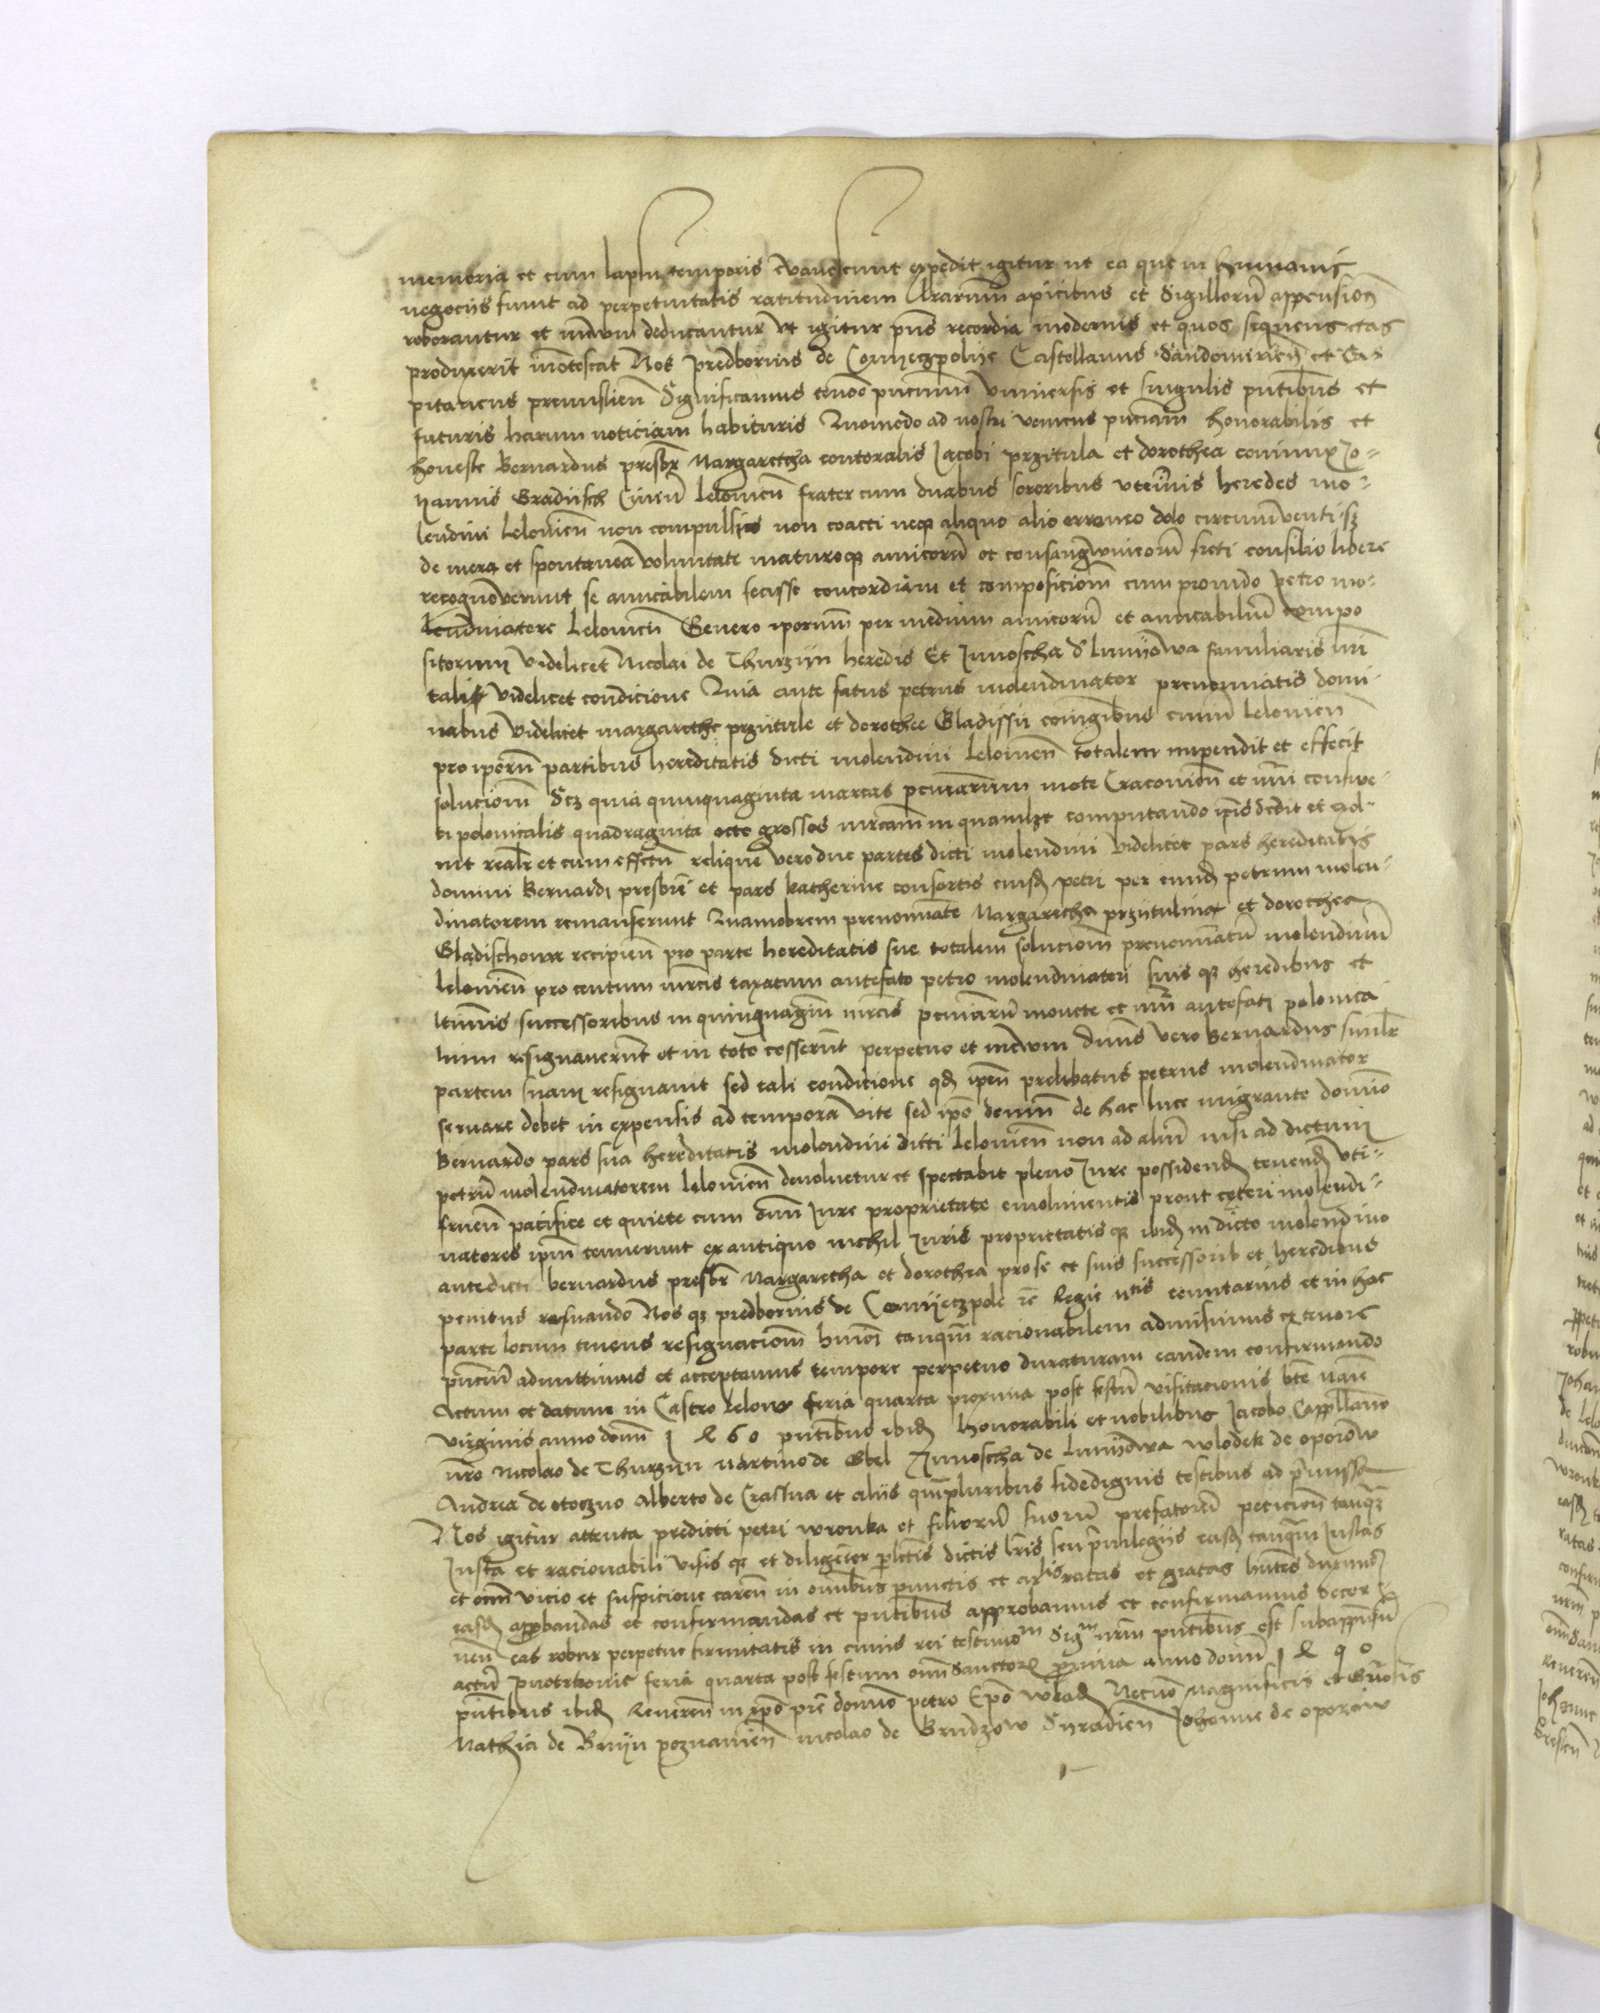 memoria et cum lapsu temporis evanescunt expedit igitur ut ea que in humanis
negociis fiunt ad perpetuitatis ratitudinem lrarum apicibus et Sigillorũ appension̄
roborantur et in ewm deducantur Ut igitur pn̄s recordia modernis et quos sequens etas
produxerit in̄otescat Nos predborius de Conyeczpolije Castellanus Sandomirien̄ et Ca-
pitaneus premislien̄ Significamus tenore pn̄cium Universis et singulis pn̄tibus et
futuris harum noticiam habituris Quomodo ad nostri veniens pn̄ciam honorabilis et
honeste Bernardus presbr̄ Margaretha contoralis Jacobi przitula et dorothea coniunx Jo-
hannis Gradiisch Civiũ Lelovien̄ frater cum duabus sororibus uterinis heredes mo-
lendini Lelovien̄ non compulsi non coacti neqз aliquo alio erroneo dolo circumventi sз
de mera et spontanea voluntate maturoqз amicorũ et consangwineorũ freti consilio libere
recognoverunt se amicabilem fecisse concordiam et composicion̄ cum provido petro mo-
lendinatore Lelovien̄ Genero ip̄orum per medium amicorũ et amicabiliũ compo
sitorum videlicet Nicolai de Thurzijn heredis Et Jnnoscha d' Lunijowa familiaris nr̄i
tali videlicet condicione Quia ante fatus petrus molendinator prenominatis domi-
nabus videlicet margarethe przitule et dorothee Gladissii coniugibus civiũ Lelovien̄
pro ip̄orũ partibus hereditatis dicti molendini Lelovien̄ totalem impendit et effecit
solucion̄ Scz quia quinquaginta marcas pecuniarum mōte Cracovien̄ et nūi consue-
ti polonicalis quadraginta octo grossos mrcam in quamlзt computando ip̄is dedit et sol-
vit realr̄ et cum effectu relique vero due partes dicti molendini videlicet pars hereditatis
domini Bernardi presbri et pars katherine consortis eiusdз petri per eundз petrum molen-
dinatorem remanserunt Quamobrem prenominate Margaretha przitulina et dorothea
Gladischowa recipien̄ pro parte hereditatis sue totalem solucion̄ prenominatũ molendinũ
Lelovien̄ pro centum mrcis taxatum antefato petro molendinatori suis qз heredibus et
ltimis successoribus in quinquagin̄ mrcis pecuniarũ monete et nūi antefati polonica
lium resignaverũt et in toto cesserũt perpetuo et in ewm dnus vero Bernardus similr̄
partem suam resignavit sed tali condicione qдз ip̄m prelibatus petrus molendinator
servare debet in expensis ad tempora vite sed ip̄o demũ de hac luce migrante domino
Bernardo pars sua hereditatis molendini dicti Lelovien̄ non ad aliũ nisi ad dictum
petrũ molendinatorem Lelovien̄ devolvetur et spectabit pleno Jure possidendз tenendз uti-
fruen̄ pacifice et quiete cum omn̄ Jure proprietate emolimentis prout ceteri molendi-
natores ip̄m tenuerunt ex antiquo nichil Juris proprietatis qз ibidз in dicto molendino
antedicti bernardus presbr̄ Margaretha et dorothea pro se et suis successorib et heredibus
penitus reservando Nos qз predborius de Conijeczpole
parte locum tenens resignacion̄ hmōi tanqm̄ racionabilem admisimus et tenore
pn̄cium admittimus et acceptamus tempore perpetuo duraturam eandem confirmando
Actum et datum in Castro Lelow feria quarta proxima post festũ visitacionis bte marie
virginis anno domī 1 4 6 0 pn̄tibus ibidз honorabili et nobilibus Jacobo Cappellano
nro Nicolao de Thurzijn martino de Gbel Jnnoscha de Lunijowa wlodek de oporow
Andrea de otoczno Alberto de Crassna et aliis qm̄pluribus fidedignis testibus ad p̄missa
Nos igitur attenta predicti petri wronka et filiorũ suorũ prefatorũ peticion̄ tanqз
Justa et racionabili visis qз et diligenter plectis dictis lris seu privilegiis easdз tanqm̄ Justas
et omn̄ vicio et suspicione caren̄ in omnibus punctis et arlis ratas et gratas hntes duximus
easdз approbandas et confirmandas et pn̄tibus approbamus et confirmamus decer
nen̄ eas robur perpetue firmitatis in cuius rei testimom Sigm nrm pn̄tibus est subappensũ
actũ Piotrkovie feria quarta post festum omn̄ Sanctorз proxima anno domī 1 4 9 0
pn̄tibus ibidз Reveren̄ in xpō pre domino petro Epo wladз Necnō Magnificis et Gn̄osis
Mathia de Bnijn poznanien̄ nicolao de Brudzow Siradien̄ Johanne de oporow